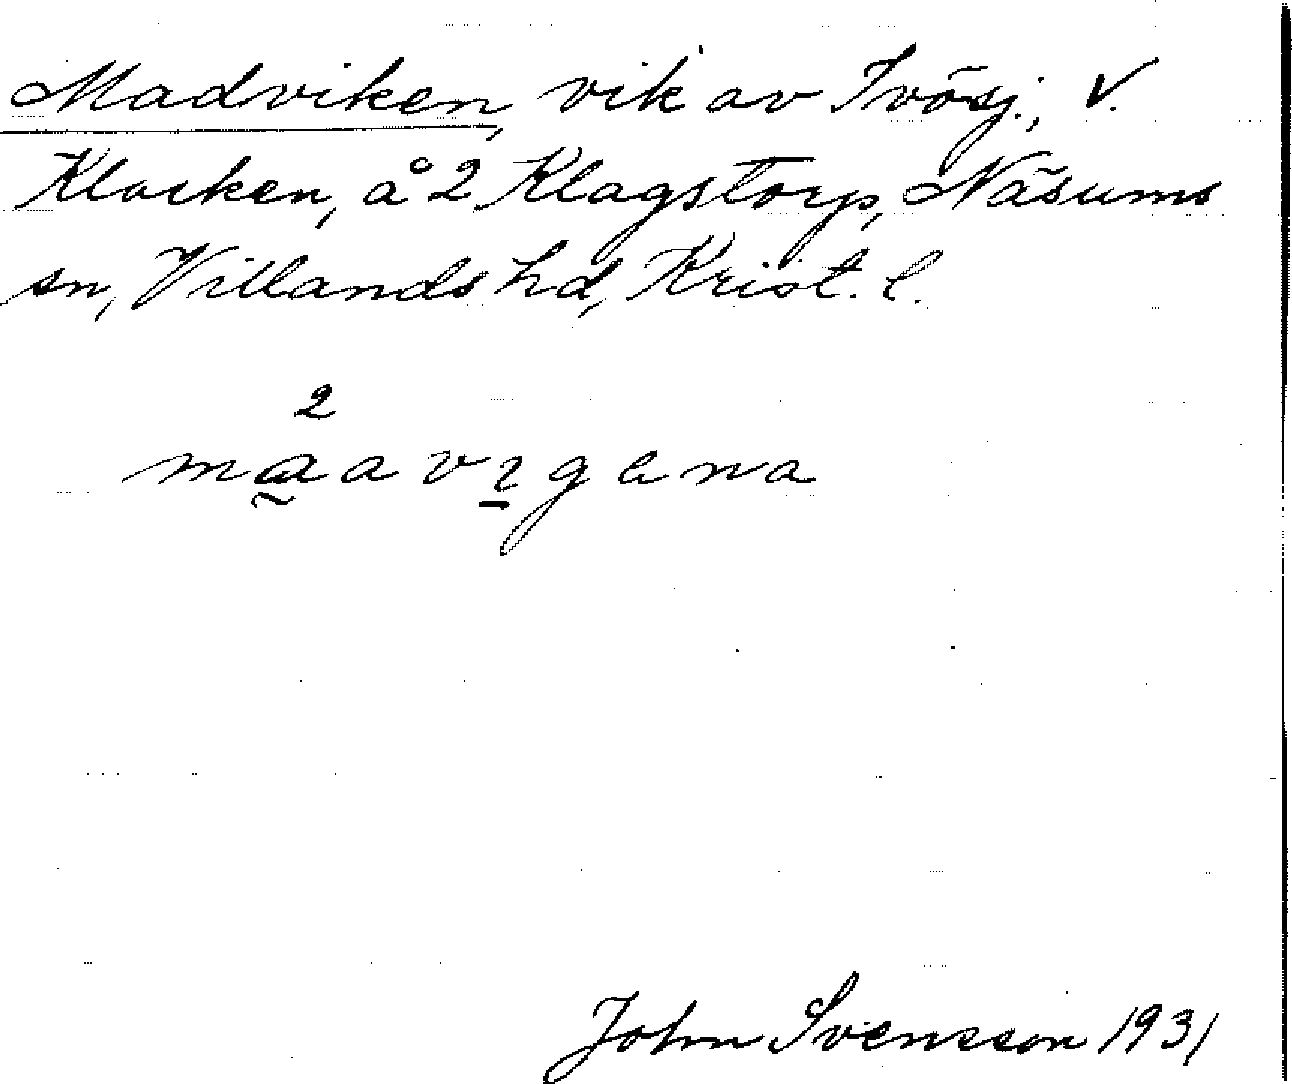 Madviken, vik av Ivösj., V.
Klacken, å 2 Klagstorp, Näsums
sn, Villands hd, Krist. l.
2
John Svensson 1931